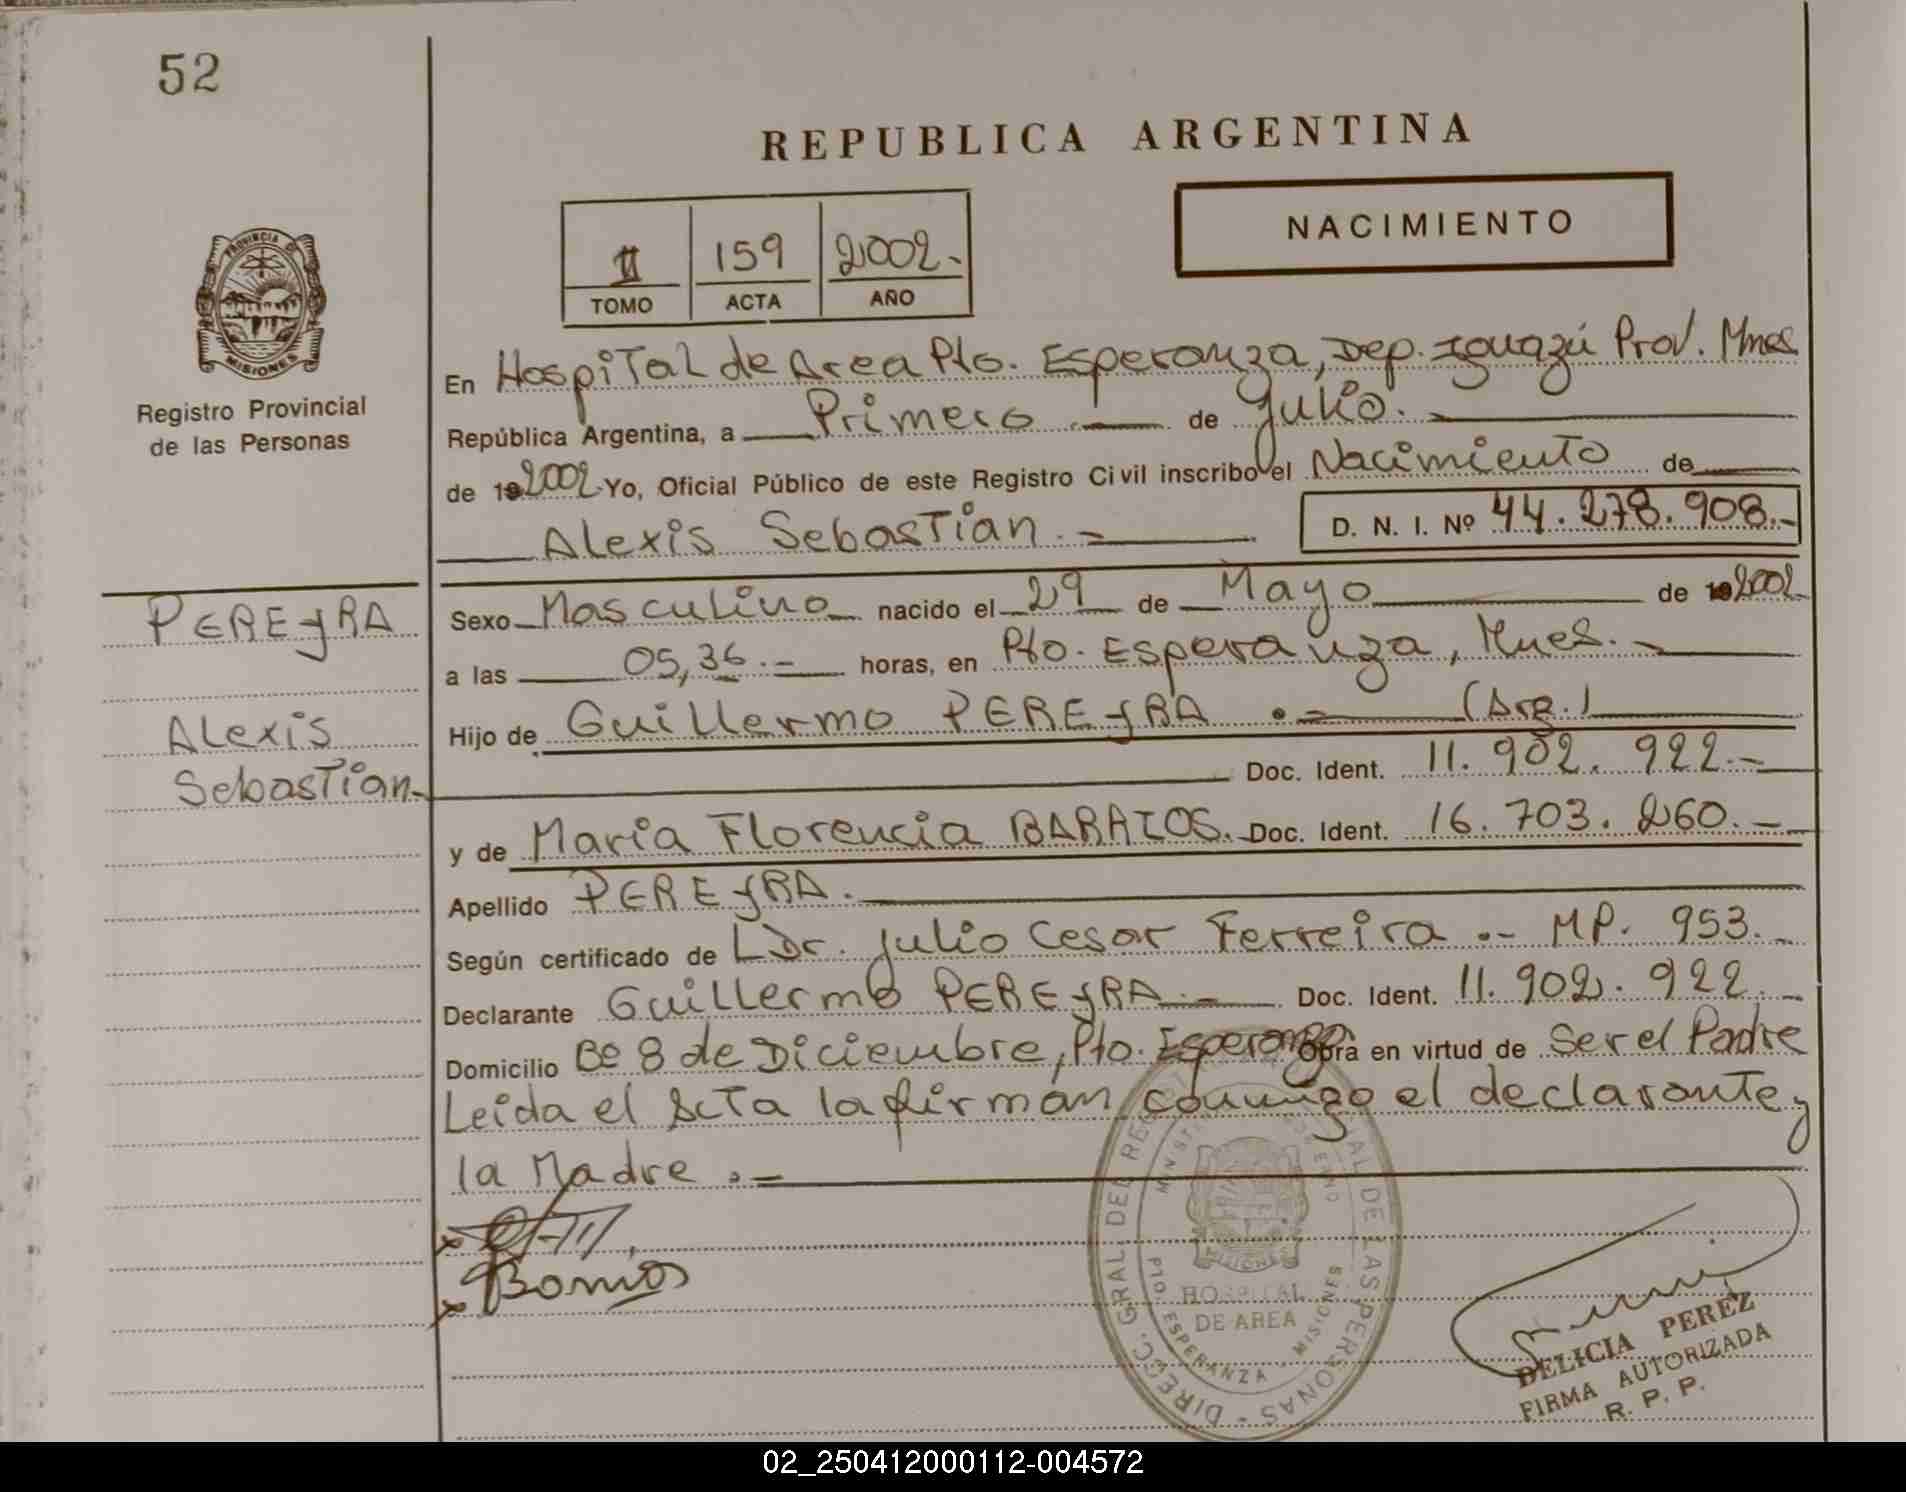 52
REPUBLICA ARGENTINA
NACIMIENTO
II 159 2002.-
TOMO ACTA AÑO
PROVINCIA DE
MISIONES
Registro Provincial
de las Personas
En Hospital de Area Pto. Esperanza, Dep. Iguazú Prov. Mnes
República Argentina, a Primero de Julio.
de 19 2002 Yo, Oficial Público de este Registro Civil inscribo el Nacimiento de
Alexis Sebastian.= D. N. I. Nº 44.278.908.-
PEREYRA
Alexis
Sebastian.-
Sexo Masculino nacido el 29 de Mayo de 19 2002.
a las 05,36.- horas, en Pto. Esperanza, Mnes.-
Hijo de Guillermo PEREYRA .= (Arg.)
Doc. Ident. 11.902.922.-
y de Maria Florencia Doc. Ident. 16.703.260.-
Apellido PEREYRA.
Según certificado de Dr. Julio Cesar Ferreira .- MP. 953.-
Declarante Guillermo PEREYRA.- Doc. Ident. 11.902.922.-
Domicilio Bº 8 de Diciembre, Pto. Esperanza Obra en virtud de Ser el Padre
Leida el Acta la firman conmigo el declarante y
la Madre .=
DIREC. GRAL. DEL REGISTRO PROVINCIAL DE LAS PERSONAS
MISIONES
HOSPITAL
DE AREA
PTO. ESPERANZA - MISIONES
DELICIA PEREZ
FIRMA AUTORIZADA
R. P. P.
02_250412000112-004572